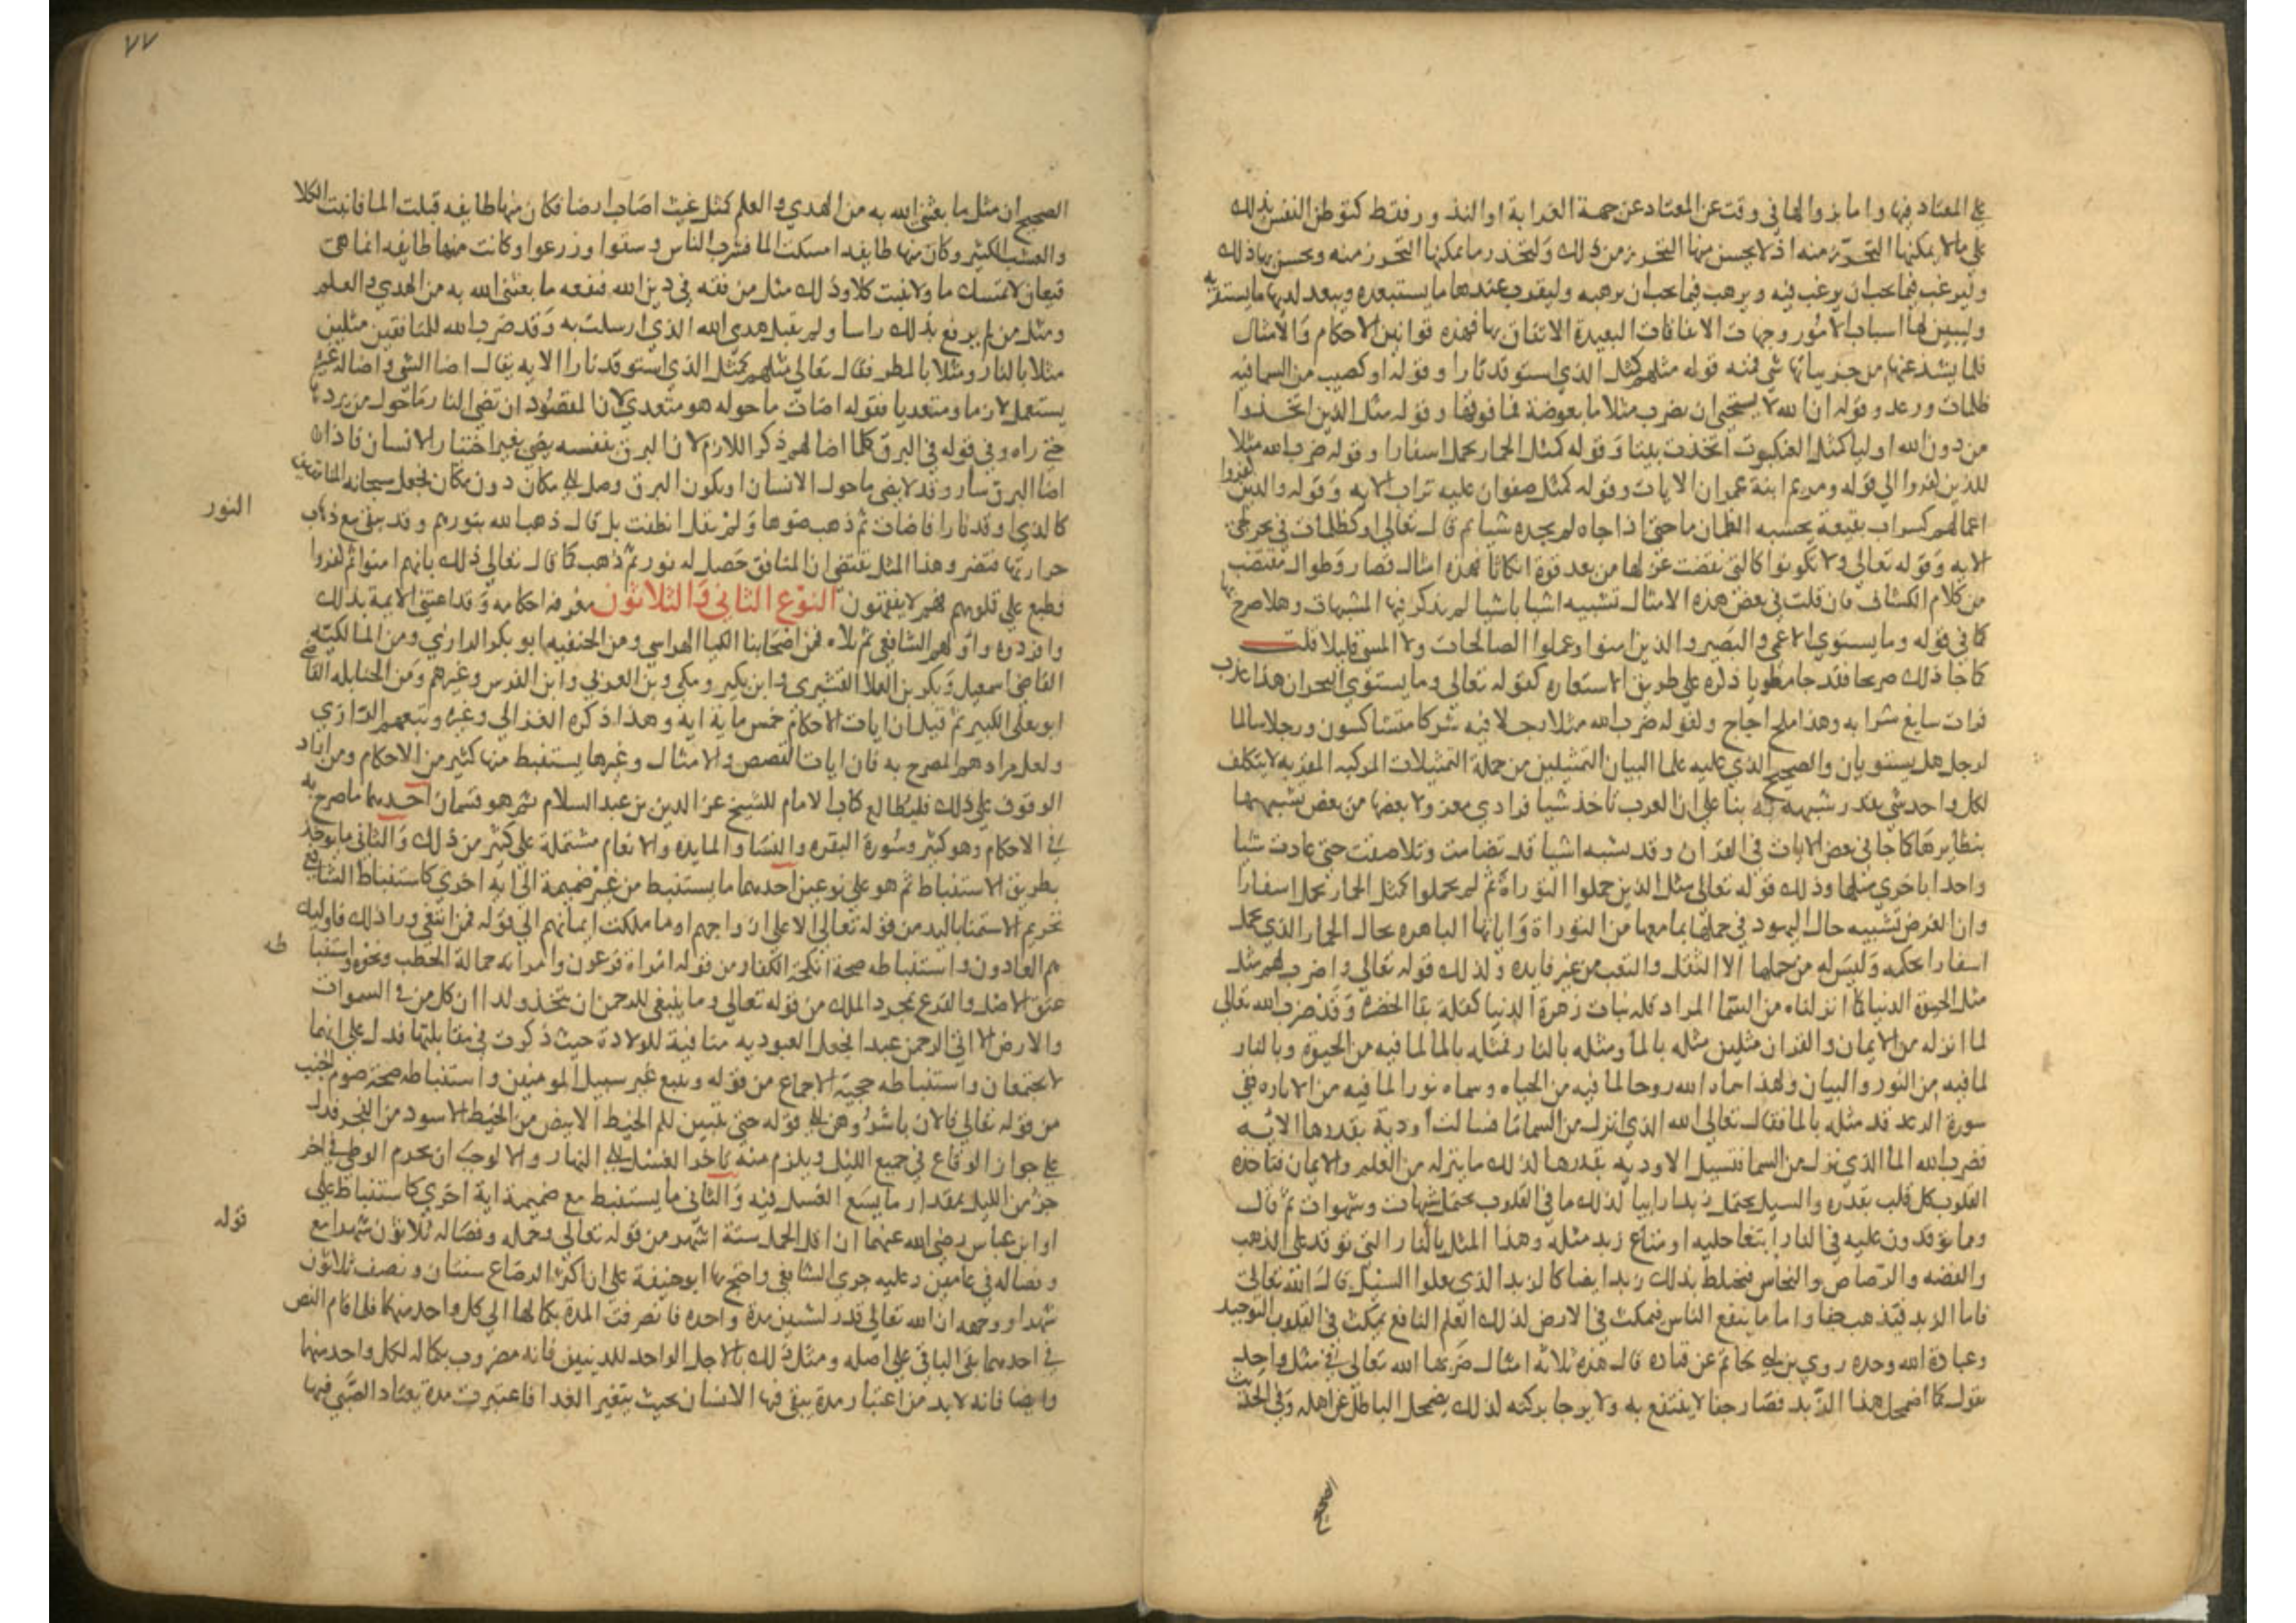 على المعتاد فيها واما بزوالها في وقت عن المعتاد عن جهة الغرابة او الندور فقط كتوطن النفس بذلك
على ما لا يمكنها التحرز منه اذ لا يحسن منها التحرز من ذلك ولتحذر ما يمكنها التحرز منه ويحسن بها ذلك
وليرغب فيما يحب ان يرغب فيه ويرهب فيما يحب ان يرهبه وليقرب عندها ما يستبعده ويبعد لديها ما يستقربه
وليبين لها اسباب الامور وجهات الاتفاقات البعيدة الاتفاق بها فهذه قوانين الاحكام والامثال
فلما يشذ عنها من جزيياتها شي فمنه قوله مثلهم كمثل الذي استوقد نارا وقوله او كصيب من السما فيه
ظلمات ورعد وقوله ان الله لا يستحيي ان يضرب مثلا ما بعوضة فما فوقها وقوله مثل الذين اتخذوا
من دون الله اوليا كمثل العنكبوت اتخذت بيتا وقوله كمثل الحمار يحمل اسفارا وقوله ضرب الله مثلا
للذين كفروا الي قوله ومريم ابنة عمران الايات وقوله كمثل صفوان عليه تراب الايه وقوله والذين كفروا
اعمالهم كسراب بقيعة يحسبه الظمان ما حتى اذا جاه لم يجده شيا ثم قال تعالى او كظلمات في بحر لجي
الايه وقوله تعالى ولا تكونوا كالتي نقضت غزلها من بعد قوة انكاثا فهذه امثال قصار وطوال مقتضب
من كلام الكشاف فان قلت في بعض هذه الامثال تشبيه اشيا باشيا لم يذكر فيها المشبهات وهلا صرح بها
كما في قوله وما يستوي الاعمى والبصير والذين امنوا وعملوا الصالحات ولا المسي قليلا قلت
كما جا ذلك صريحا فقد جا مطويا ذكره على طريق الاستعاره كقوله تعالى وما يستوي البحران هذا عذب
فرات سايغ شرابه وهذا ملح اجاج وكقوله ضرب الله مثلا رجلا فيه شركا متشاكسون ورجلا سالما
لرجل هل يستويان والصحيح الذي عليه علما البيان التمثيلين من جملة التمثيلات المركبه المفزيه لا يتكلف
لكل واحد شي بقدر شبهه به بنا على ان العرب تاخذ شيا فرادي معزولا بعضها من بعض تشبيهها
بنظايرها كما جا في بعض الايات في القران وقد تشبه اشيا قد تضامت وتلاصقت حتى عادت شيا
واحدا باخري مثلها وذلك قوله تعالى مثل الذين حملوا التوراة ثم لم يحملوها كمثل الحمار يحمل اسفارا
وان الغرض تشبيه حال اليهود في حملها بما معها من التوراة واياتها الباهره بحال الحمار الذي يحمل
اسفارا بحكمه وليس له من حملها الا الثقل والتعب من غير فايده وكذلك قوله تعالى واضرب لهم مثل
مثل الحيوة الدنيا كما انزلناه من السما المراد قلة ثبات زهرة الدنيا كقلة بقا الخضره وقد ضرب الله تعالى
لما انزله من الايمان والقران مثلين مثله بالما ومثله بالنار فمثله بالما لما فيه من الحيوة وبالنار
لما فيه من النور والبيان ولهذا سماه الله روحا لما فيه من الحياه وسماه نورا لما فيه من الاناره ففي
سورة الرعد قد مثله بالما فقال تعالى الله الذي انزل من السما ما فسالت اودية بقدرها الايه
فضرب الله الما الذي نزل من السما فتسيل الاوديه بقدرها كذلك ما ينزله من العلم والايمان فتاخذه
القلوب كل قلب بقدره والسيل يحتمل زبدا رابيا كذلك ما في القلوب يحتمل شبهات وشهوات ثم قال
وما توقدون عليه في النار ابتغا حليه او متاع زبد مثله وهذا المثل بالنار التي توقد على الذهب
والفضه والرصاص والنحاس فيختلط بذلك زبد ايضا كالزبد الذي يعلوا السيل قال الله تعالى
فاما الزبد فيذهب جفا واما ما ينفع الناس فيمكث في الارض كذلك العلم النافع يمكث في القلوب التوحيد
وعبادة الله وحده روي بن ابي حاتم عن قتاده قال هذه ثلاثه امثال ضربها الله تعالى في مثل واحد
يقول كما اضمحل هذا الزبد فصار جفا لا ينتفع به ولا يرجا بركته كذلك يضمحل الباطل عن اهله وفي الحديث
الصحيح
٧٧
الصحيح ان مثل ما بعثني الله به من الهدي والعلم كمثل غيث اصاب ارضا فكان منها طايفه قبلت الما فانبتت الكلا
والعشب الكثير وكان منها طايفه امسكت الما فشرب الناس وسقوا وزرعوا وكانت منها طايفه انما هي
قيعان لا تمسك ما ولا تنبت كلا وذلك مثل من فقه في دين الله فنفعه ما بعثني الله به من الهدي والعلم
ومثل من لم يرفع بذلك راسا ولم يقبل هدي الله الذي ارسلت به وقد ضرب الله للمنافقين مثلين
مثلا بالنار ومثلا بالمطر فقال تعالى مثلهم كمثل الذي استوقد نارا الايه يقال اضا الشي واضاه غيره
يستعمل لازما ومتعديا فقوله اضات ما حوله هو متعدي لان المقصود ان تضي النار ما حول من يريدها
حتى راه وفي قوله في البرق كلما اضا لهم ذكر اللازم لان البرق بنفسه يضي بغير اختيار الانسان فاذا
اضا البرق سار وقد لا يضي ما حول الانسان او يكون البرق وصل الى مكان دون مكان فجعل سبحانه المنافقين
كالذي اوقد نارا فاضات ثم ذهب ضوها ولم يقل انطفت بل قال ذهب الله بنورهم وقد يبقى مع ذهاب
النور
حرارتها فتضر وهذا المثل يقتضي ان المنافق حصل له نور ثم ذهب كما قال تعالى ذلك بانهم امنوا ثم كفروا
فطبع على قلوبهم فهم لا يفقهون النوع الثاني والثلاثون معرفه احكامه وقد اعتنى الايمة بذلك
وافردوه واولهم الشافعي ثم تلاه من اصحابنا الكيا الهراسي ومن الحنفيه ابو بكر الرازي ومن المالكيه
القاضي اسمعيل وبكر بن العلا القشيري وابن بكير ومكي وبن العربي وابن الفرس وغيرهم ومن الحنابله القاضي
ابو يعلى الكبير ثم قيل ان ايات الاحكام خمس ماية ايه وهذا ذكره الغزالي وغيره وتبعهم الرازي
ولعل مرادهم المصرح به فان ايات القصص والامثال وغيرها يستنبط منها كثير من الاحكام ومن اراد
الوقوف على ذلك فليطالع كتاب الامام للشيخ عز الدين بن عبد السلام ثم هو قسمان احدهما ما صرح به
في الاحكام وهو كثير وسورة البقره والنسا والمايده والانعام مشتملة على كثير من ذلك والثاني ما يوخذ
بطريق الاستنباط ثم هو على نوعين احدهما ما يستنبط من غير ضميمة الى ايه اخري كاستنباط الشافعي
تحريم الاستمنا باليد من قوله تعالى الا على ازواجهم او ما ملكت ايمانهم الى قوله فمن ابتغي ورا ذلك فاوليك
هم العادون واستنباطه صحة انكحة الكفار من قوله امراة فرعون وامراته حمالة الحطب ونحوه واستنبا
طه
عتق الاصل والفرع بمجرد الملك من قوله تعالى وما ينبغي للرحمن ان يتخذ ولدا ان كل من في السموات
والارض الا اتي الرحمن عبدا فجعل العبوديه منافية للولادة حيث ذكرت في مقابلتها فدل على انهما
لا يجتمعان واستنباطه حجية الاجماع من قوله ويتبع غير سبيل المومنين واستنباطه صحة صوم الجنب
من قوله تعالى فالان باشروهن الى قوله حتى يتبين لكم الخيط الابيض من الخيط الاسود من الفجر فدل
على جواز الوقاع في جميع الليل ويلزم منه تاخر الغسل الى النهار والا لوجب ان يحرم الوطي في اخر
جز من الليل بمقدار ما يسع الغسل فيه والثاني ما يستنبط مع ضميمة اية اخري كاستنباط على
او ابن عباس رضي الله عنهما ان اقل الحمل ستة اشهر من قوله تعالى وحمله وفصاله ثلاثون شهرا مع
قوله
وفصاله في عامين وعليه جري الشافعي واحتج بها ابو حنيفة على ان اكثر الرضاع سنتان ونصف ثلاثون
شهرا ووجهه ان الله تعالى قدر لشيين مدة واحده فانصرفت المدة بكمالها الي كل واحد منهما فلما قام النص
في احدهما بقي الباقي على اصله ومثل ذلك بالاجل الواحد للدينين فانه مضروب بكماله لكل واحد منهما
وايضا فانه لا بد من اعتبار مدة يبقى فيها الانسان بحيث يتغير الغدا فاعتبرت مدة يعتاد الصبي فيها